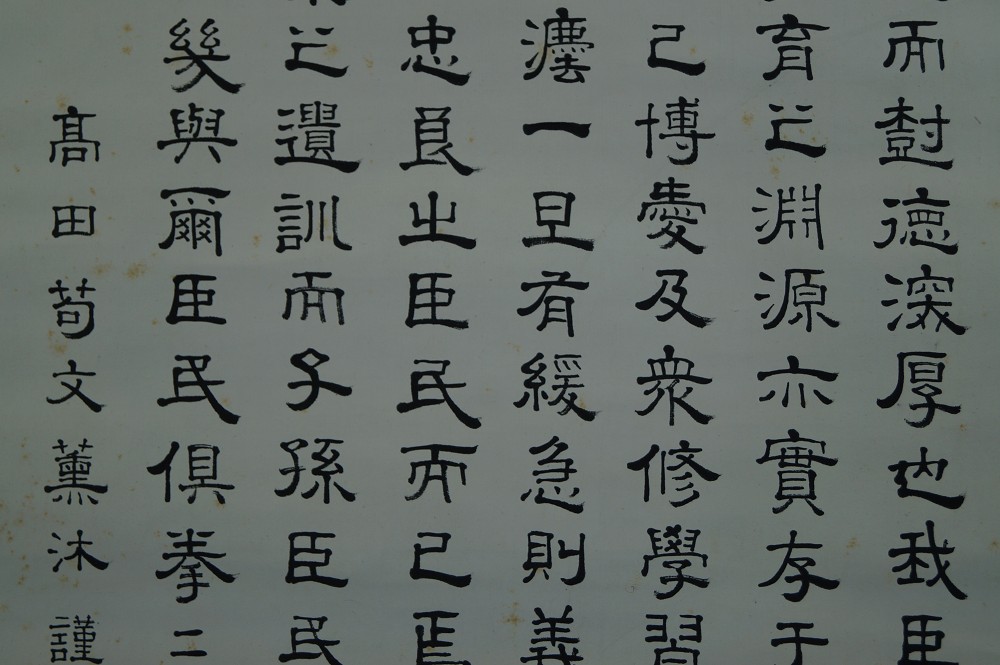 而樹德深厚也我臣
育之淵源亦實存于
己博愛及衆修學習
灋一旦有緩急則義
忠良之臣民而已焉
之遺訓而子孫臣民
幾與爾臣民俱拳二
髙田苟文薰沐謹